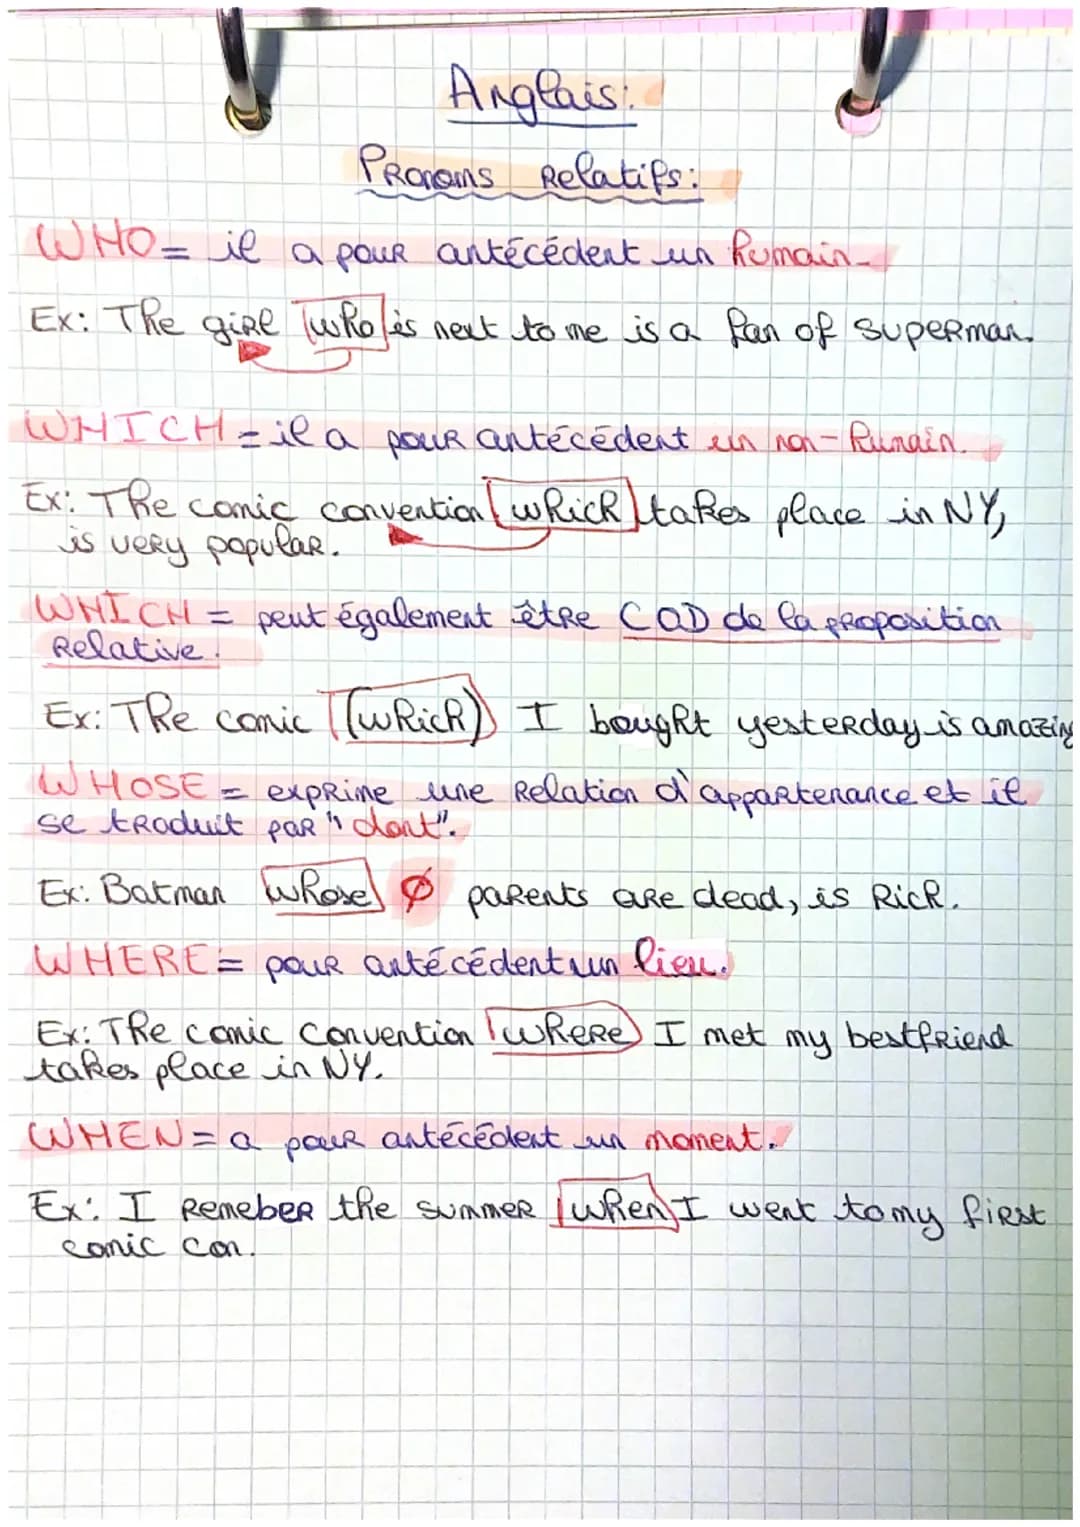 Anglais:
Pronoms Relatifs:
WHO = il a pour antécédent un humain.
Ex: The girl who is next to me is a fan of superman.
WHICH = il a pour antécédent un non-humain.
Ex: The comic convention which takes place in NY,
is very popular.
WHICH = peut également être COD de la proposition
Relative.
Ex: The comic (which) I bought yesterday is amazing
WHOSE = exprime une Relation d'appartenance et il
se traduit par "dont".
Ex: Batman whose Ø parents are dead, is Rich.
WHERE = pour antécédent un lieu.
Ex: The comic convention where I met my bestfriend
takes place in NY.
WHEN = a pour antécédent un moment.
Ex: I Remeber the summer when I went to my first
comic con.